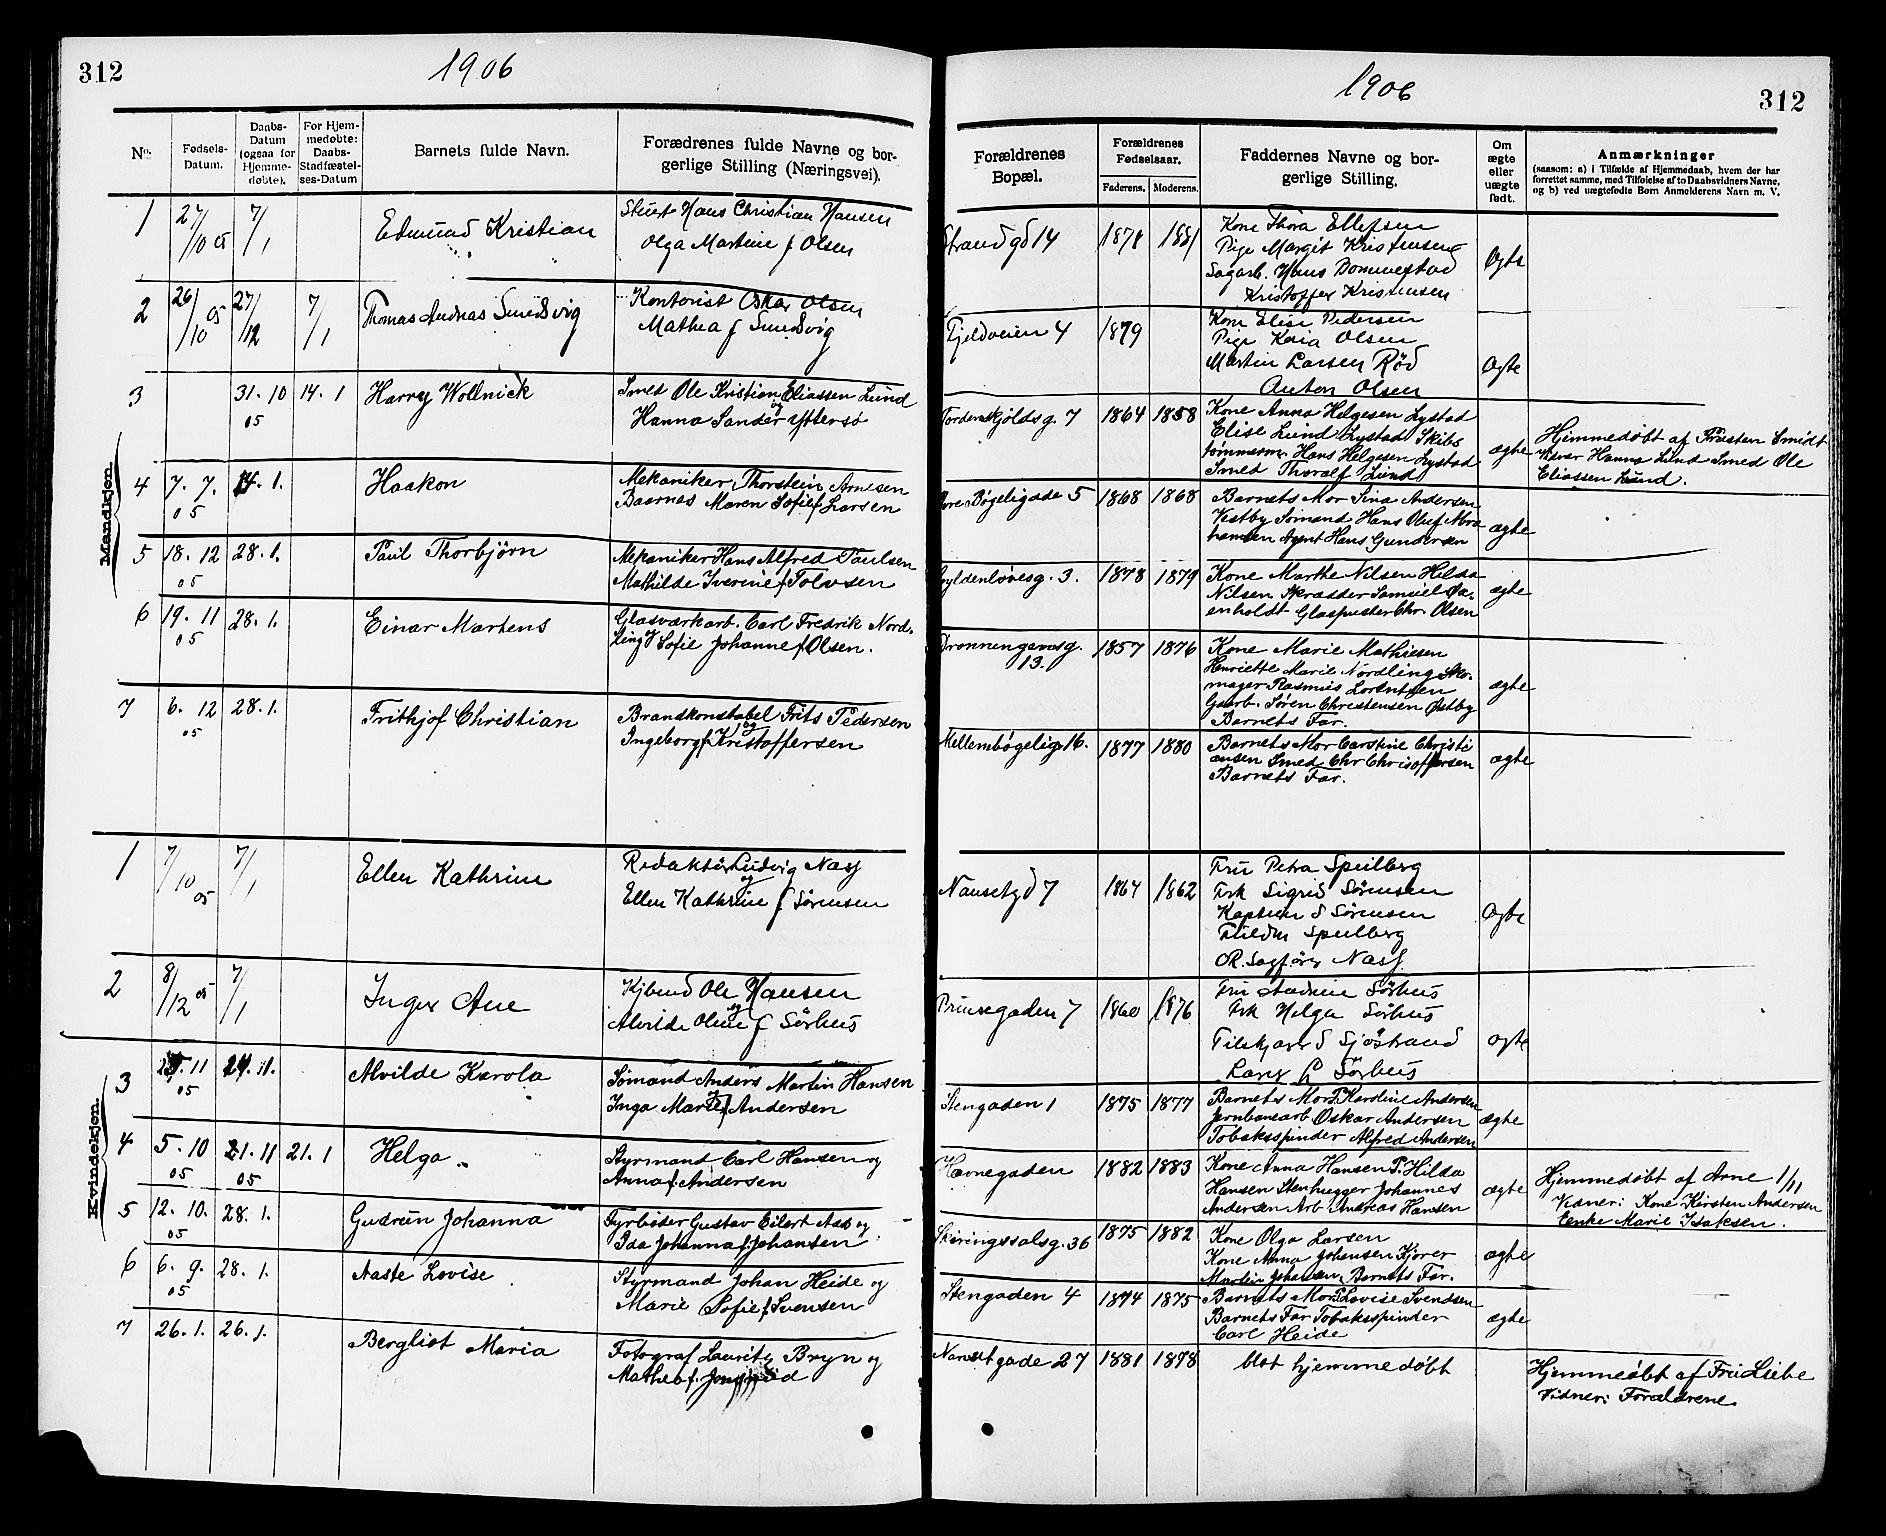 312
1906
No.
Fødsels-
Datum.
Daabs-
Datum
(ogsaa for
Hjemme-
døbte).
For Hjem-
medøbte:
Daabs-
Stadfæstel-
ses-Datum
Barnets fulde Navn.
Forædrenes fulde Navne og bor-
gerlige Stilling (Næringsvei).
Mandkjøn
1
27/10 05
7/1
Edmund Kristian
Stuert Hans Christian Hansen
Olga Martine f Olsen
2
26/10 05
27/12
7/1
Thomas Andreas Smedsvig
Kontorist Oskar Olsen
Mathea f Smedsvig
3
31. 10
05
14. 1
Harry Wollnick
Smed Ole Kristian Eliassen Lund
og
Hanna Sander Yttersø
4
7. 7.
05
14. 1.
Haakon
Mekaniker Thorstein Arnesen
Baarnes Maren Sofie f Larsen
5
18. 12
05
28. 1.
Paul Thorbjørn
Mekaniker Hans Alfred Paulsen
Mathilde Iverine f Tolvsen
6
19. 11
05
28. 1.
Einar Martens
Glasværkarb. Carl Fredrik Nord-
ling og Sofie Johanne f Olsen.
7
6. 12
05
28. 1.
Frithjof Christian
Brandkonstabel Frits Pedersen
og
Ingeborg f. Kristoffersen
Kvindekjøn.
1
7/10 05
7/1
Ellen Kathrine
Redaktør Ludvig Næss
og
Ellen Kathrine f Sørensen
2
8/12 05
7/1
Inger Ane
Kjbmd Ole Hansen
og
Alvilde Oline f Sørhus
3
11
05
11.
Alvilde Karola
Sømand Anders Martin Hansen
Inga Marie f Andersen
4
5. 10
05
21. 11
05
21. 1
Helga.
Styrmand Carl Hansen og
Anna f. Andersen
5
12. 10.
05
28. 1.
Gudrun Johanna
Fyrbøder Gustav Eilert Aas og
Ida Johanna f. Johansen
6
6. 9.
05
28. 1.
Aaste Lovise
Styrmand Johan Heide og
Marie Sofie f. Svensen
7
26. 1.
26. 1.
Bergliot Maria
Fotograf Lauritz Bryn og
Mathea f.
1906
312
Forældrenes
Bopæl.
Forældrenes
Fødselsaar.
Faderens.
Moderens.
Faddernes Navne og bor-
gerlige Stilling.
Om
ægte
eller
uægte
født.
Anmærkninger
(saasom: a) i Tilfælde af Hjemmedaab, hvem der har
forrettet samme, med Tilføielse af to Daabsvidners Navne,
og b) ved uægtefødte Børn Anmelderens Navn m. V.
Strandgd 14
1878
1881
Kone Thora Ellefsen
Pige Margit Kristensen
Sagarb. Hans Bommestad
Kristoffer Kristensen
Ægte
Fjeldveien 4
1879
Kone Elise Pedersen
Pige Karia Olsen
Martin Larsen Rød
Anton Olsen
Ægte
Tordenskjoldsg. 7
1864
1858
Kone Anna Helgesen Lystad
Elise Lund Lystad Skibs
tømmerm. Hans Helgesen Lystad
Smed Thoralf Lund
ægte
Hjemmedøbt af Prästen Smidt
Vidner Hanna Lund Smed Ole
Eliassen Lund.
Øvre Bøgeligade 5
1868
1868
Barnets Mor Sina Andersen
Vestby Sømand Hans Oluf Abra
hamsen Agent Hans Gundersen
ægte
Gyldenløvesg. 3.
1878
1879
Kone Marthe Nilsen Hilda
Nilsen Skrædder Samuel Øx-
enholdt Glaspuster Chr. Olsen
ægte
Dronningensg.
13.
1857
1876
Kone Marie Mathiesen
Henriette Marie Nordling Sko-
mager Rasmus Lorentsen
Gaarb. Søren Christensen Østby
Barnets Far.
ægte
Mellembøgelig. 16.
1877
1880
Barnets Mor Carstine Christi
ansen Smed Chr Christoffersen
Barnets Far.
ægte
Nansetgd 7
1864
1862
Fru Petra Speilberg
Frk Sigrid Sørensen
Kaptein S Sørensen
Speilberg
O.R. Sagfører Næss
Ægte
Prinsegaden 7
1860
1876
Fru Andrine Sørhus
Frk Helga Sørhus
S Sjøstrand
Lars L Sørhus
ægte
Stengaden 1
1875
1877
Barnets Mor P. Karoline Andersen
Jernbanearb Oskar Andersen
Tobaksspinder Alfred Andersen
ægte
Havnegaden
1882
1883
Kone Anna Hansen P. Hilda
Hansen Stenhugger Johannes
Andersen Arb Andreas Hansen
ægte
Hjemmedøbt af Arne 1/11
Vidner: Kone Kirsten Andersen
Enke Marie Isaksen.
Skiringssalsg. 36
1875
1882
Kone Olga Larsen
Kone Anna Johansen Kjører
Martin Johansen, Barnets Far.
ægte
Stengaden 4
1874
1875
Barnets Mor P. Lovise Svendsen
Barnets Far Tobaksspinder
Carl Heide
ægte
Nansetgade 27
1881
1878
blot hjemmedøbt
Hjemmeøbt af Fru Liebe
Vidner: Forældrene
312